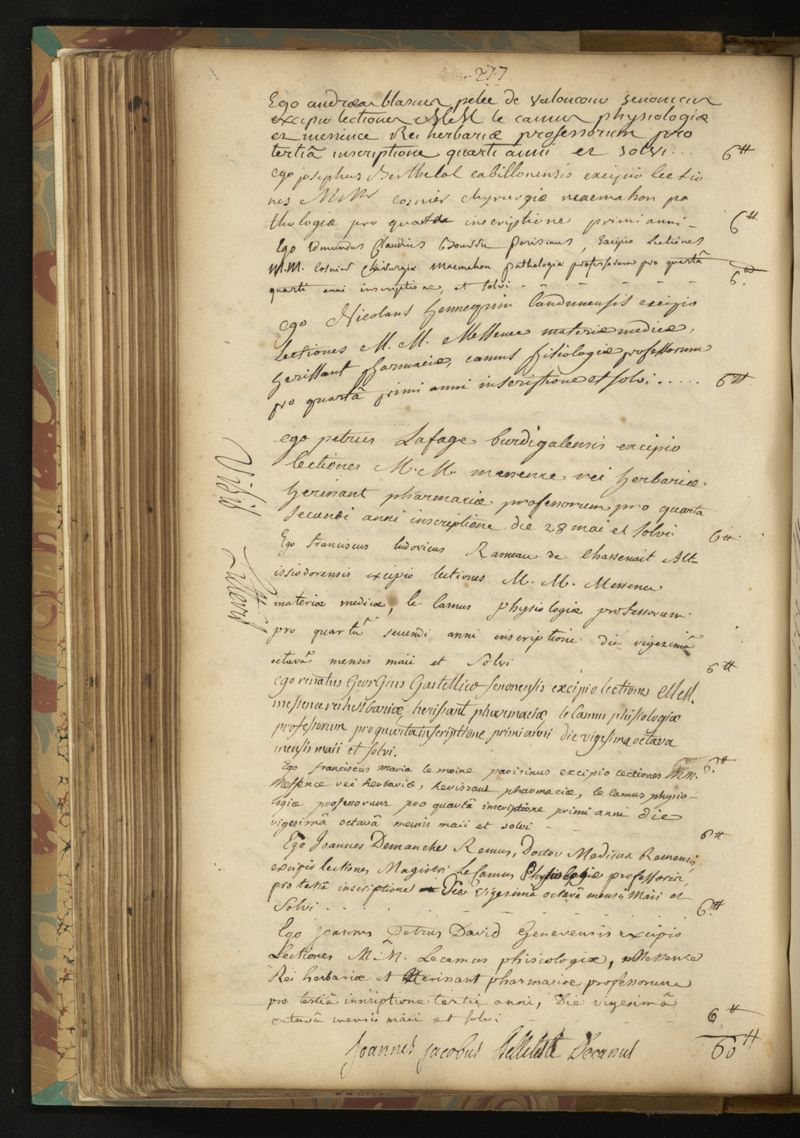 217
Ego andræas blasius pelée de valoncour senonicus
excipio lectiones MM le camus physiologiæ
et messence Rei herbariæ professorum pro
tertiâ inscriptione quarti anni et solvi... 6#
ego josephus Berthelot cabillonensis excipio lectio
nes MMrs cosnier chyrurgiæ macmahon pa
thologiæ pro quarta inscriptione primi anni - 6#
Ego Edmundus Claudius parisinus, Excipio Lectiones
M.M. Cosnier Chirurgiæ Macmahon pathologiæ professorum pro quartâ
quarti anni inscriptione, et solvi - - - - - 6#
Ego Nicolaus hennequin laudunensis excipio
Lectiones M. M. Messence materiæ medicæ,
herissant pharmaciæ, camus fisiologiæ professorum
pro quartâ primi anni inscriptione et solvi..... 6#
ego petrus Lafage burdigalensis excipio
lectiones M.M. messence rei herbariæ
herissant pharmaciæ professorum pro quarta
secundi anni inscriptione die 28 mai et solvi 6#
Ego franciscus ludovicus Rameau de Chassenait Alt-
issiodorensis excipio lectiones M. M. Messence
materiæ medicæ, le Camus physiologiæ professorum
pro quartâ secundi anni inscriptione die vigesimâ
octavâ mensis maii et solvi 6#
ego renatus Georgius Gastellier senonensis excipio lectiones MM.
messence rei herbariæ, herissant pharmaciæ le camus phisiologiæ
professorum pro quarta inscriptione primi anni die vigesima octava
mensis maii et solvi. 6#
Ego franciscus maria le moine parisinus excipio lectiones M.M.
Messence rei herbariæ, herissant pharmaciæ, le camus physio-
logiæ professorum pro quartâ inscriptione primi anni die
vigesimâ octavâ mensis maii et solvi - - 6#
Ego Joannes Demanche Remus, Doctor Medicus Remensis
excipio lectiones Magistri Le Camus Physiologiæ professoris,
pro tertiâ inscriptione Die vigesima octavâ mensis Maii et
Solvi . . . . . 6#
Ego Joannes Petrus David Genevensis excipio
Lectiones M.M. Lecamus phisiologiæ, Messence
Rei herbariæ et Herissant pharmaciæ professorum
pro tertiâ inscriptione tertii anni, Die vigesimâ
octavâ mensis maii et solvi 6#
Joannes Jacobus Belleteste Decanus 60#